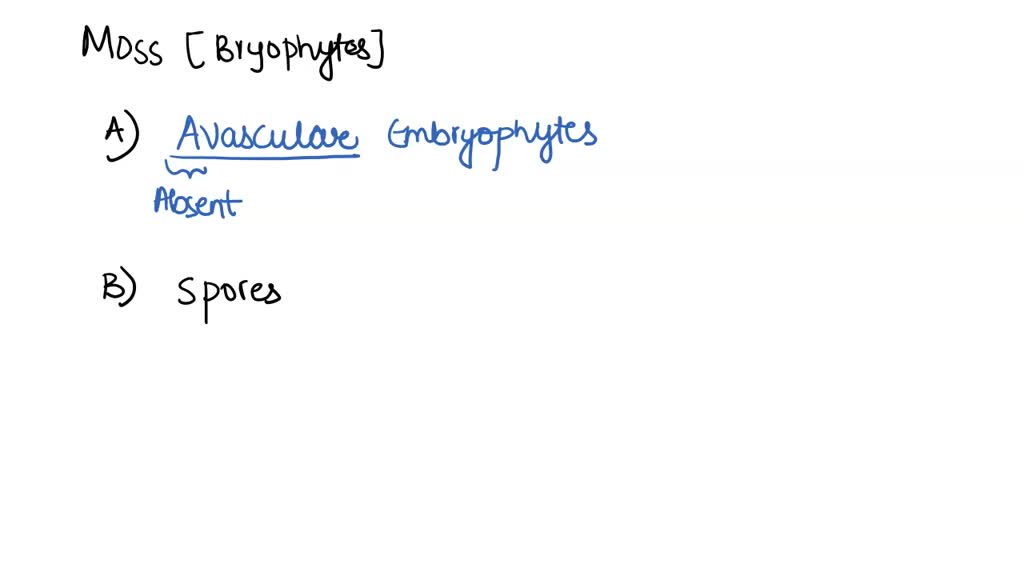 Moss [Bryophytes]
A) Avascular Embryophytes
Absent
B) Spores